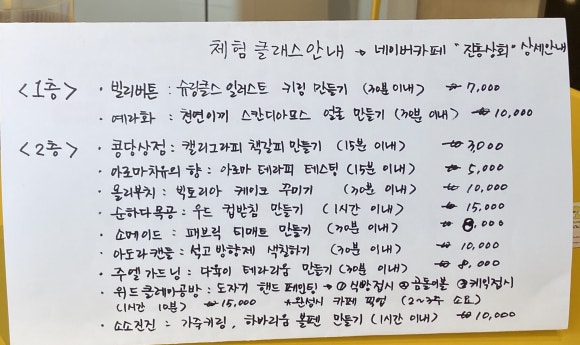 체험 클래스 안내 → 네이버카페 "진통상회" 상세안내
<1층> · 빌리버튼 : 슈링클스 일러스트 키링 만들기 (30분 이내) ₩ 7,000
· 예라화 : 천연이끼 스칸디아모스 얼굴 만들기 (30분 이내) ₩ 10,000
<2층> · 콩당상점 : 캘리그라피 책갈피 만들기 (15분 이내) ₩ 3,000
· 아로마치유의 향 : 아로마 테라피 테스팅 (15분 이내) ₩ 5,000
· 올리부치 : 빅토리아 케이크 꾸미기 (30분 이내) ₩ 10,000
· 순하다목공 : 우드 컵받침 만들기 (1시간 이내) ₩ 15,000
· 소메이드 : 패브릭 티매트 만들기 (30분 이내) ₩ 8,000
· 아도라캔들 : 석고 방향제 색칠하기 (30분 이내) ₩ 10,000
· 주엘 가드닝 : 다육이 테라리움 만들기 (30분 이내) ₩ 8,000
· 위드클레이공방 : 도자기 핸드 페인팅 → ① 식빵접시 ② 곰돌이볼 ③ 케익접시
(1시간 10분) ₩ 15,000 *완성시 카페 픽업 (2~3주 소요)
· 소소진진 : 가죽키링, 하바리움 볼펜 만들기 (1시간 이내) ₩ 10,000